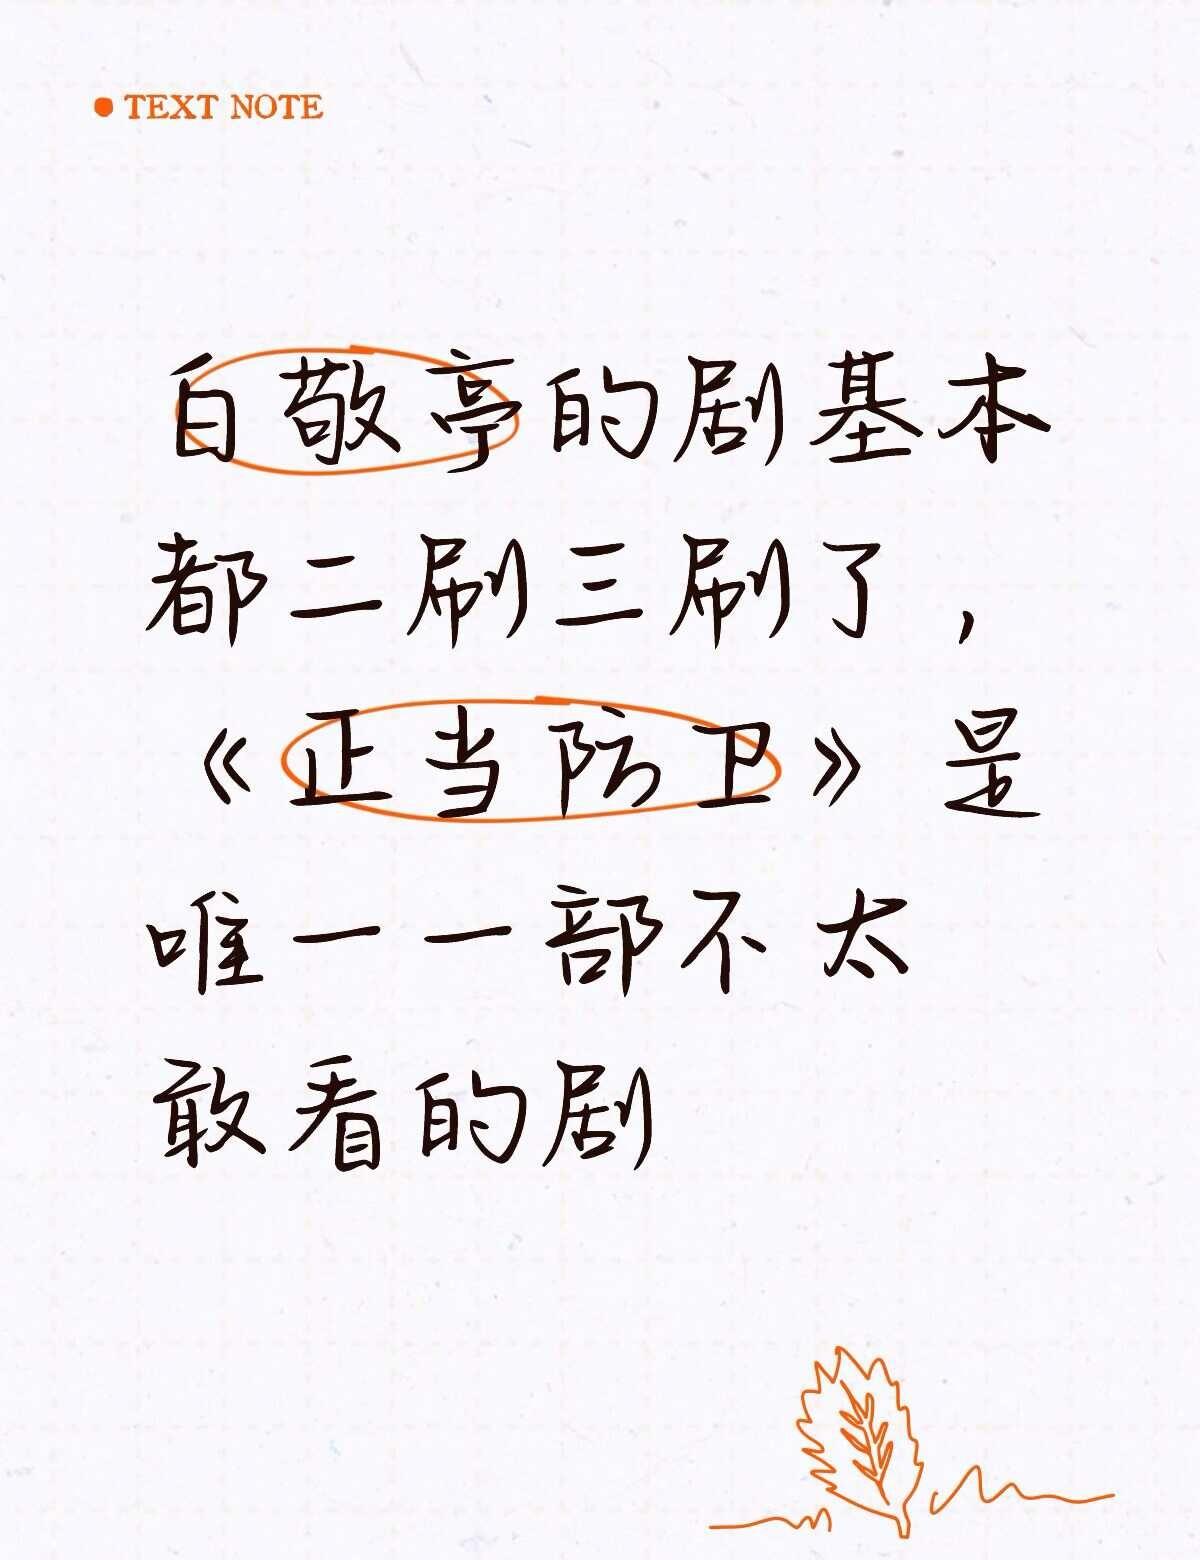 TEXT NOTE
白敬亭的剧基本
都二刷三刷了，
《正当防卫》是
唯一一部不太
敢看的剧